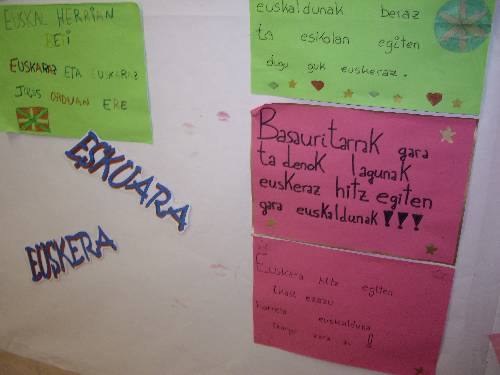 EUSKAL HERRIAN
BETI
EUSKARAZ ETA EUSKARAZ
JOLAS ORDUAN ERE
euskaldunak beraz
ta eskolan egiten
dugu guk euskeraz.
ESKUARA
EUSKERA
Basauritarrak gara
ta denok lagunak
euskeraz hitz egiten
gara euskaldunak!!!
Euskara hitz egiten
euskalduna